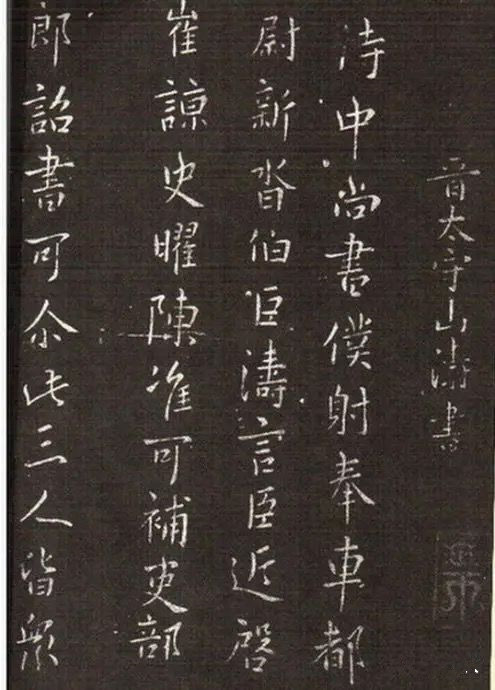 晋太守山涛書
侍中尚書僕射奉車都
尉新沓伯臣濤言臣近啓
崔諒史曜陳准可補吏部
郎詔書可尒此三人皆衆